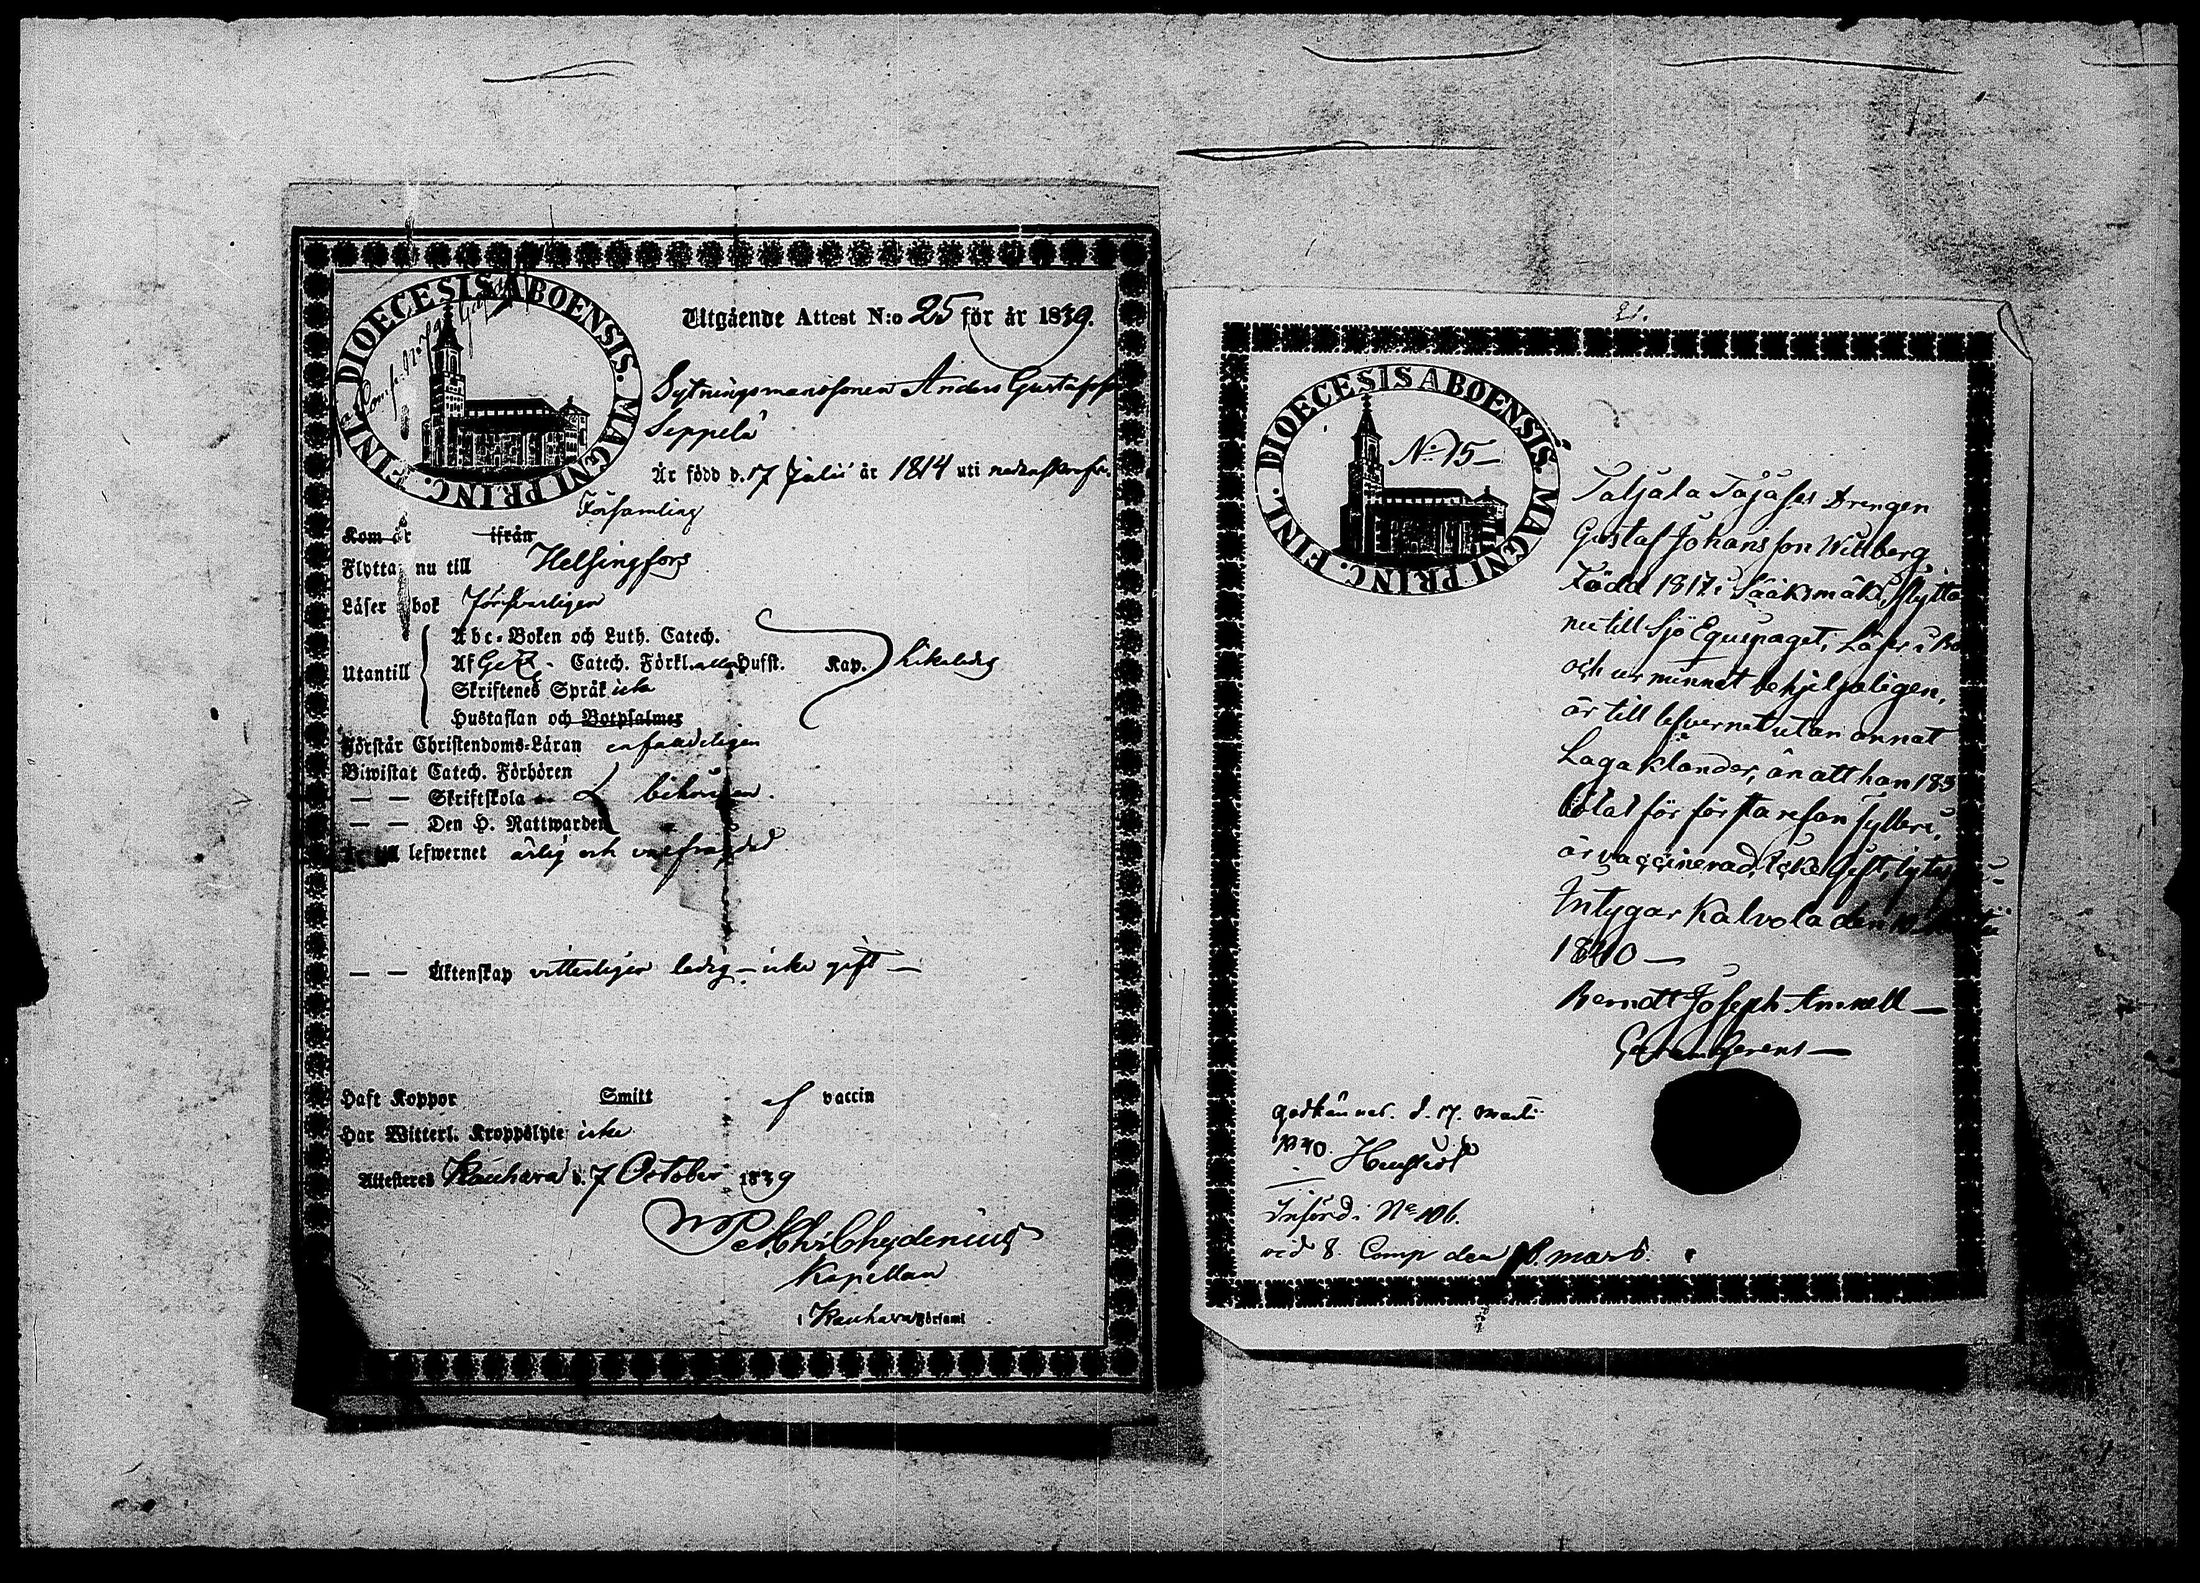 DIOECESIS ABOENSIS. MAGNI PRINC. FINL.
Utgående Attest N:o 25 för år 1839.
Sytningsmanssonen Anders Gustafsson
Seppelä
Är född d. 17 Julii år 1814 uti
Församling
Kom år ifrån
Flyttar nu till Helsingfors
Läser i bok försvarligen
Utantill
Abc-Boken och Luth. Catech.
Af Catech. Förkl. alla Hufst. Kap. likaledes
Skriftenes Språk icke
Hustaflan och Botpsalmer
Förstår Christendoms-Läran enfaldeligen
Biwistat Catech. Förhören
— — Skriftskola
— — Den H. Nattwarden
till lefwernet ärlig och
— — Äktenskap vitterligen ledig – icke gift –
Haft Koppor Smitt af vaccin
Har Witterl. Kroppslyte icke
Attesteras Kauhava d. 7 October 1839
Chydenius
Kapellan
i Kauhava Församl
21.
DIOECESIS ABOENSIS. MAGNI PRINC. FINL.
No 75 –
Taljala Drengen
Gustaf Johansson Willberg
Född 1817 i Sääksmäki, flyttar
nu till Sjö Equipaget, Läser i Bo
och ur minnet behjelpeligen,
är till lefvernet utan annat
Laga klander, än att han 183
bötat för första resan fylleri,
är vaccinerad, icke Gift,
Intygar Kalvola den
1840 –
Berndt Joseph
godkännes. d. 17. Marti
1840.
Införd i No 106.
vid 8. Comp den 18. mars.